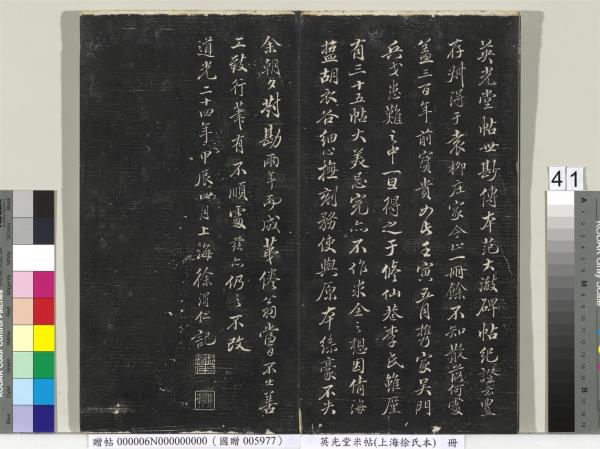 英光堂帖世尟傳本范大澈碑帖紀證云豐
存州得于袁柳庄家全止一冊餘不知散落何處
蓋三百年前寶貴如此壬寅五月携家吴門
兵戈患難之中一旦得之于修仙巷李氏雖僅
有三十五帖大美忌完亦不作求全之想因倩海
鹽胡衣谷細心撫刻務使與原本絲豪不失
余朝夕對勘兩年而成第倦翁當日不止善
工致行筆有不順處茲亦仍之不改
道光二十四年甲辰四月上海徐渭仁記
41
贈帖 000006N000000000（國贈 005977）
英光堂米帖(上海徐氏本) 冊
KODAK Color Control Patches
KODAK Gray Scale